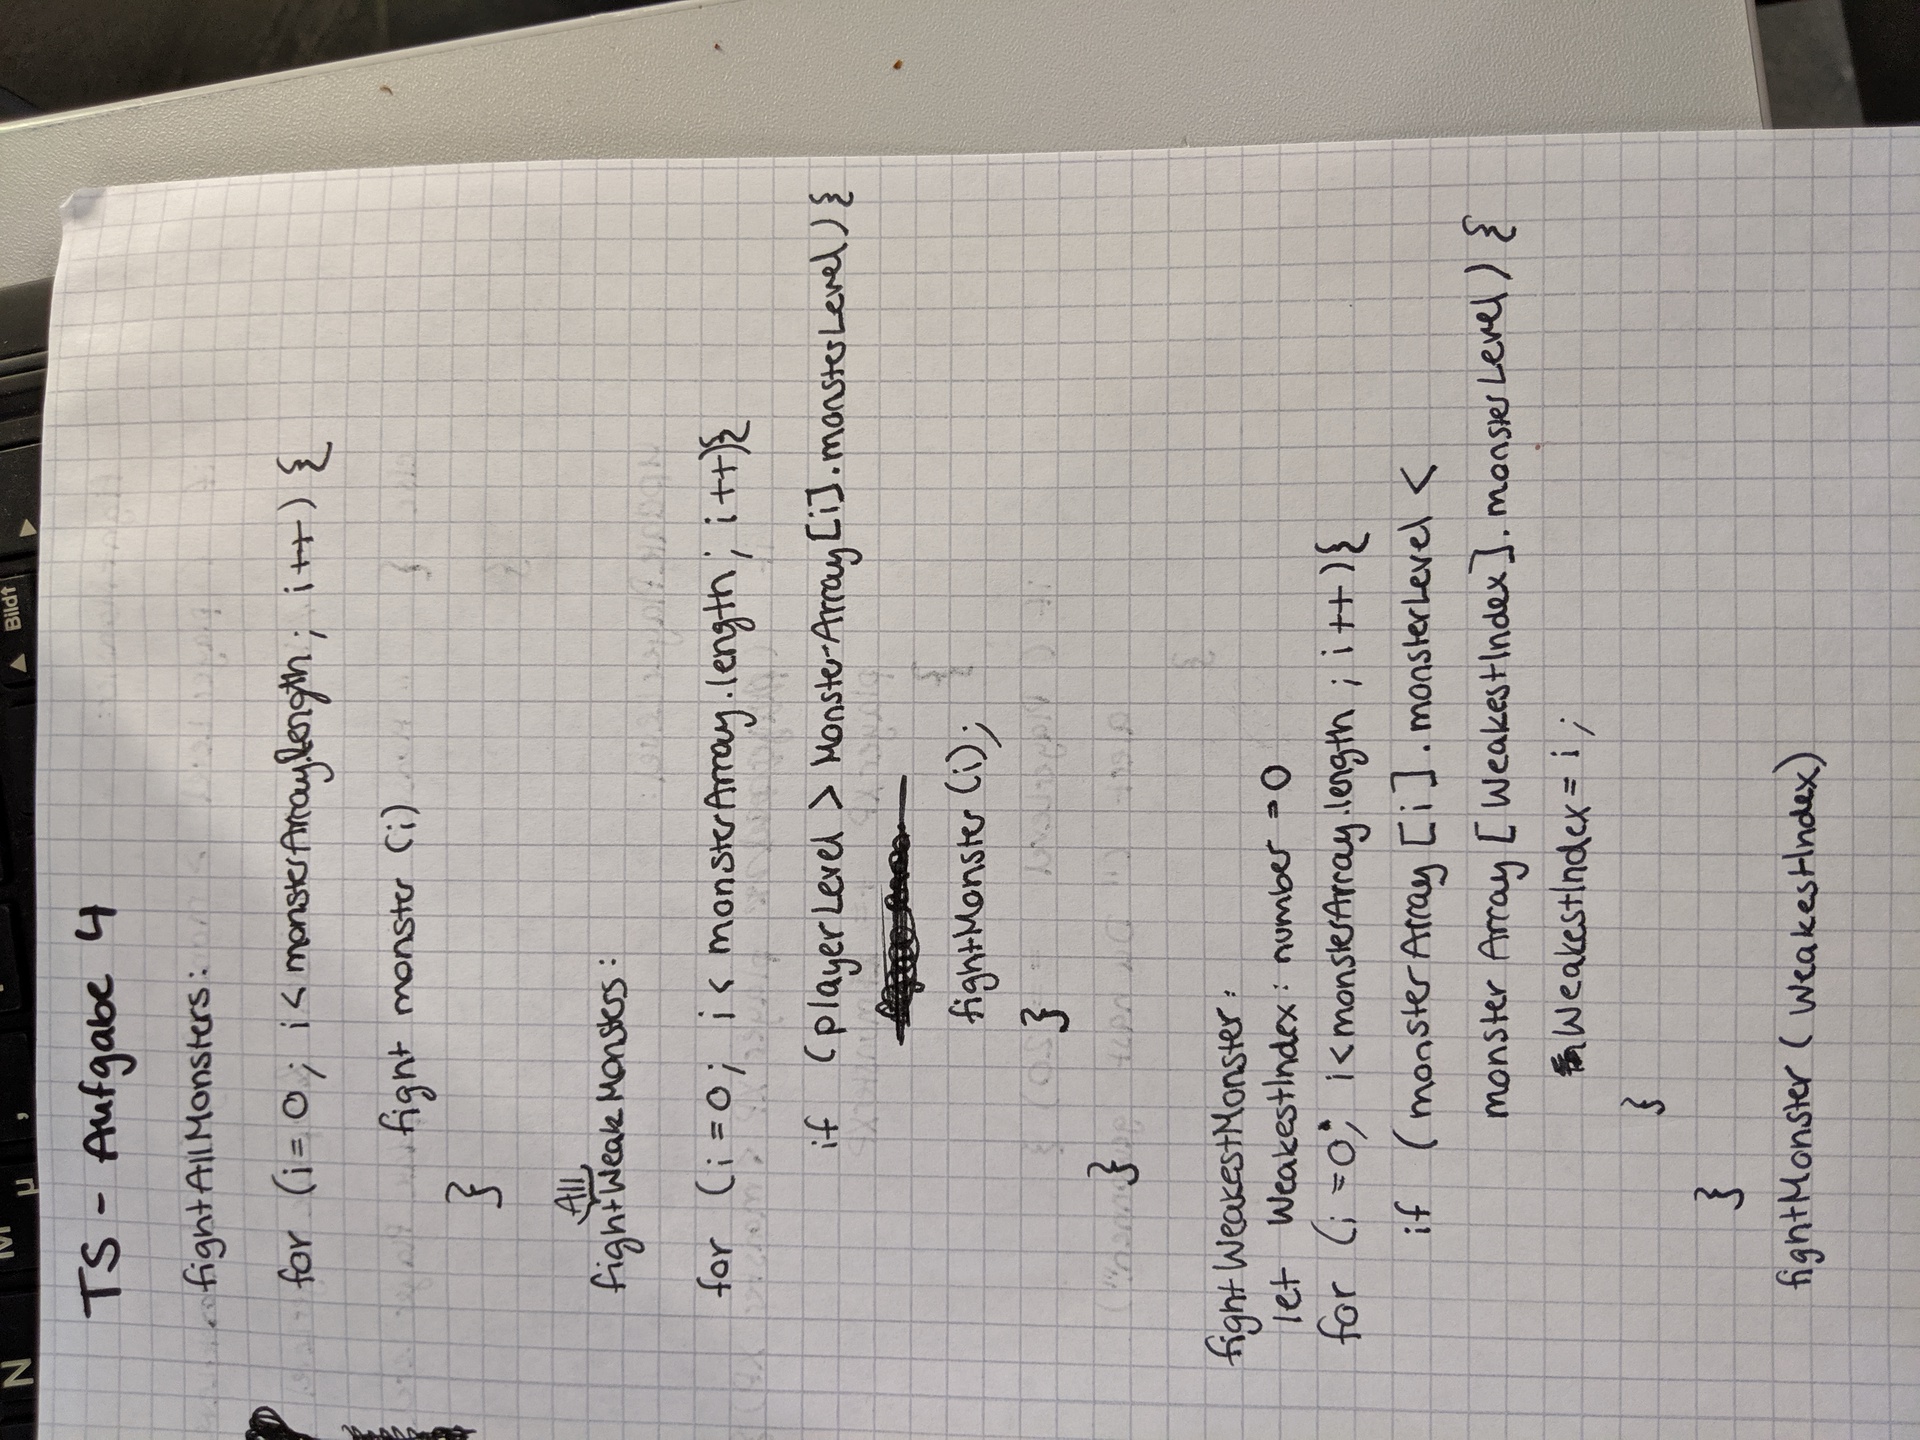 TS - Aufgabe 4
fightAllMonsters:
for (i = 0; i < monsterArray.length; i++) {
fight monster (i)
}
All
fightWeakMonsters:
for (i = 0; i < monsterArray.length; i++){
if (playerLevel > MonsterArray[i].monsterLevel) {
fightMonster (i);
}
}
fightWeakestMonster:
let WeakestIndex: number = 0
for (i = 0; i < monsterArray.length; i++){
if (monsterArray [i].monsterLevel <
monsterArray [WeakestIndex].monsterLevel) {
WeakestIndex = i;
}
}
fightMonster (WeakestIndex)
N
M
µ
,
Bildt